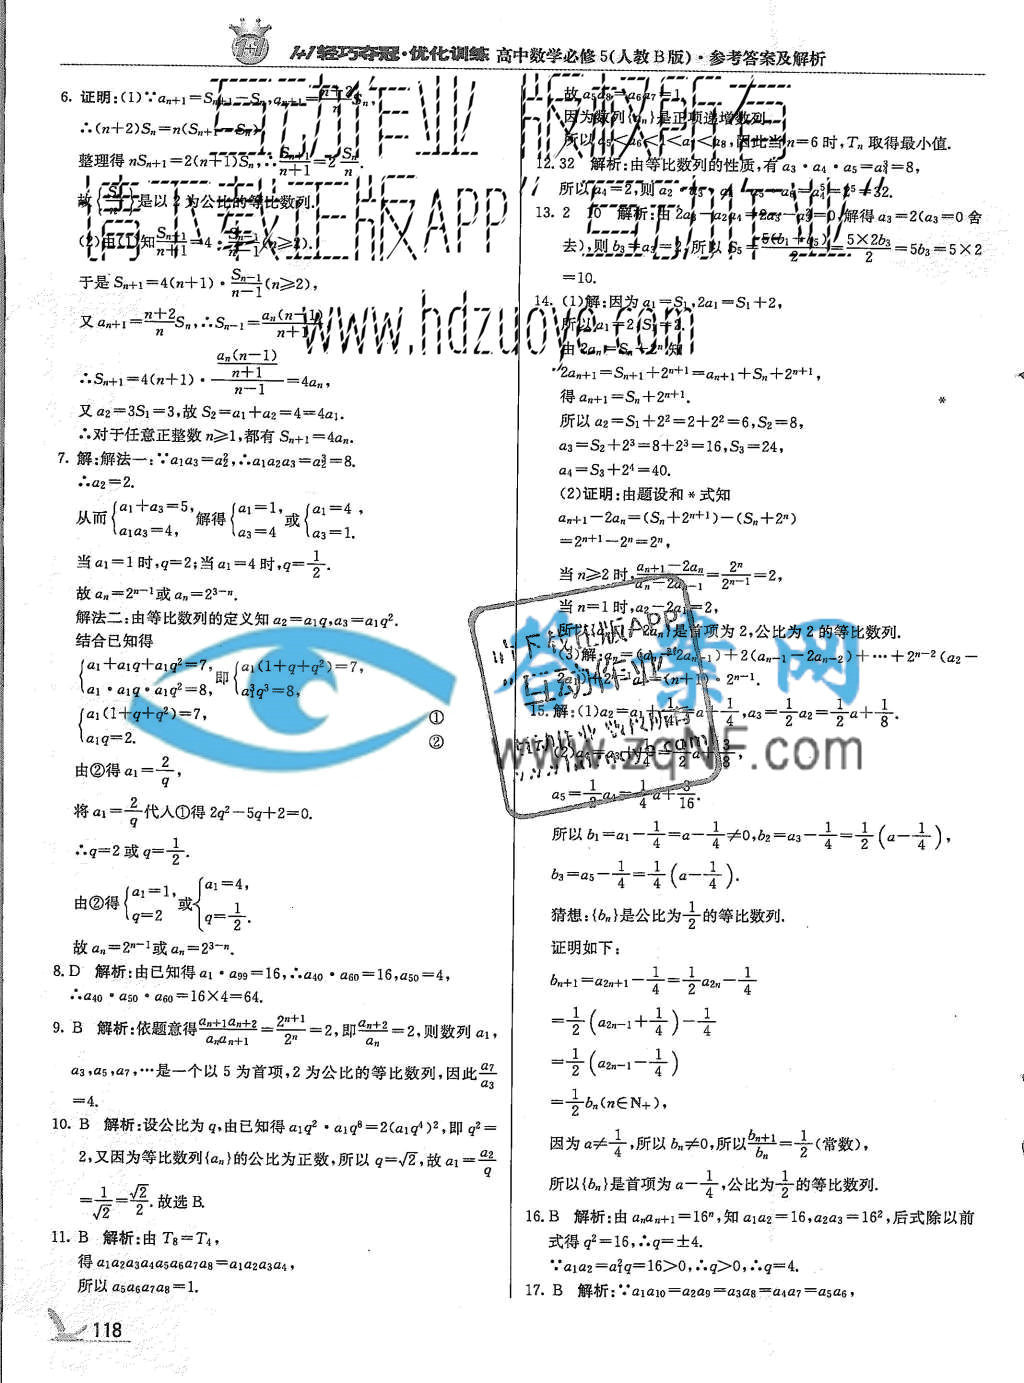 1+1轻巧夺冠·优化训练 高中数学必修5(人教B版)·参考答案及解析
6. 证明:(1)∵aₙ₊₁=Sₙ₊₁-Sₙ,aₙ₊₁=(n+2)/n Sₙ,
∴(n+2)Sₙ=n(Sₙ₊₁-Sₙ)
整理得 nSₙ₊₁=2(n+1)Sₙ,∴Sₙ₊₁/(n+1)=2 Sₙ/n.
故{Sₙ/n}是以2为公比的等比数列.
(2)由(1)知 Sₙ₊₁/(n+1)=4·Sₙ₋₁/(n-1)(n≥2).
于是 Sₙ₊₁=4(n+1)·Sₙ₋₁/(n-1)(n≥2),
又 aₙ₊₁=(n+2)/n Sₙ,∴Sₙ₋₁=aₙ(n-1)/(n+1)
∴Sₙ₊₁=4(n+1)·(aₙ(n-1)/(n+1))/(n-1)=4aₙ,
又 a₂=3S₁=3,故 S₂=a₁+a₂=4=4a₁.
∴对于任意正整数 n≥1,都有 Sₙ₊₁=4aₙ.
7. 解:解法一:∵a₁a₃=a₂²,∴a₁a₂a₃=a₂³=8.
∴a₂=2.
从而{a₁+a₃=5, a₁a₃=4, 解得{a₁=1, a₃=4 或{a₁=4, a₃=1.
当 a₁=1 时,q=2;当 a₁=4 时,q=1/2.
故 aₙ=2ⁿ⁻¹或 aₙ=2³⁻ⁿ.
解法二:由等比数列的定义知 a₂=a₁q,a₃=a₁q².
结合已知得
{a₁+a₁q+a₁q²=7, a₁·a₁q·a₁q²=8, 即{a₁(1+q+q²)=7, a₁³q³=8,
{a₁(1+q+q²)=7, ①
a₁q=2. ②
由②得 a₁=2/q,
将 a₁=2/q 代人①得 2q²-5q+2=0.
∴q=2 或 q=1/2.
由②得{a₁=1, q=2 或{a₁=4, q=1/2.
故 aₙ=2ⁿ⁻¹或 aₙ=2³⁻ⁿ.
8. D 解析:由已知得 a₁·a₉₉=16,∴a₄₀·a₆₀=16,a₅₀=4,
∴a₄₀·a₅₀·a₆₀=16×4=64.
9. B 解析:依题意得 aₙ₊₁aₙ₊₂/aₙaₙ₊₁=2ⁿ⁺¹/2ⁿ=2,即 aₙ₊₂/aₙ=2,则数列 a₁,
a₃,a₅,a₇,…是一个以5为首项,2为公比的等比数列,因此 a₇/a₃
=4.
10. B 解析:设公比为 q,由已知得 a₁q²·a₁q⁸=2(a₁q⁴)²,即 q²=
2,又因为等比数列{aₙ}的公比为正数,所以 q=√2,故 a₁=a₂/q
=1/√2=√2/2.故选 B.
11. B 解析:由 T₈=T₄,
得 a₁a₂a₃a₄a₅a₆a₇a₈=a₁a₂a₃a₄,
所以 a₅a₆a₇a₈=1.
118
故 a₅a₈=a₆a₇=1
因为数列{aₙ}是正项递增数列
所以 a₅<a₆<1<a₇<a₈,因此当 n=6 时,Tₙ 取得最小值.
12. 32 解析:由等比数列的性质,有 a₃·a₄·a₅=a₄³=8,
所以 a₄=2,则 a₂·a₃·a₄·a₅·a₆=a₄⁵=2⁵=32.
13. 2 10 解析:由 2a₃-a₂a₄+2a₃-a₃²=0,解得 a₃=2(a₃=0 舍
去),则 b₃=a₃=2,所以 S₅=5(b₁+b₅)/2=5×2b₃/2=5b₃=5×2
=10.
14. (1)解:因为 a₁=S₁,2a₁=S₁+2,
所以 a₁=2,S₁=2.
由 2aₙ=Sₙ+2ⁿ 知
2aₙ₊₁=Sₙ₊₁+2ⁿ⁺¹=aₙ₊₁+Sₙ+2ⁿ⁺¹,
得 aₙ₊₁=Sₙ+2ⁿ⁺¹. *
所以 a₂=S₁+2²=2+2²=6,S₂=8,
a₃=S₂+2³=8+2³=16,S₃=24,
a₄=S₃+2⁴=40.
(2)证明:由题设和*式知
aₙ₊₁-2aₙ=(Sₙ+2ⁿ⁺¹)-(Sₙ+2ⁿ)
=2ⁿ⁺¹-2ⁿ=2ⁿ,
当 n≥2 时,(aₙ₊₁-2aₙ)/(aₙ-2aₙ₋₁)=2ⁿ/2ⁿ⁻¹=2,
当 n=1 时,a₂-2a₁=2,
所以{aₙ₊₁-2aₙ}是首项为2,公比为2的等比数列.
(3)解:aₙ=(aₙ-2aₙ₋₁)+2(aₙ₋₁-2aₙ₋₂)+…+2ⁿ⁻²(a₂-
2a₁)+2ⁿ⁻¹a₁=(n+1)·2ⁿ⁻¹.
15. 解:(1)a₂=a₁+1/4=a+1/4,a₃=1/2 a₂=1/2 a+1/8.
(2)a₄=a₃+1/4=1/2 a+3/8,
a₅=1/2 a₄=1/4 a+3/16.
所以 b₁=a₁-1/4=a-1/4≠0,b₂=a₃-1/4=1/2(a-1/4),
b₃=a₅-1/4=1/4(a-1/4).
猜想:{bₙ}是公比为1/2的等比数列.
证明如下:
bₙ₊₁=a₂ₙ₊₁-1/4=1/2 a₂ₙ-1/4
=1/2(a₂ₙ₋₁+1/4)-1/4
=1/2(a₂ₙ₋₁-1/4)
=1/2 bₙ(n∈N₊),
因为 a≠1/4,所以 bₙ≠0,所以 bₙ₊₁/bₙ=1/2(常数),
所以{bₙ}是首项为 a-1/4,公比为1/2的等比数列.
16. B 解析:由 aₙaₙ₊₁=16ⁿ,知 a₁a₂=16,a₂a₃=16²,后式除以前
式得 q²=16,∴q=±4.
∵a₁a₂=a₁²q=16>0,∴q>0,∴q=4.
17. B 解析:∵a₁a₁₀=a₂a₉=a₃a₈=a₄a₇=a₅a₆,
互动作业 版权所有
请下载正版APP 互动作业
www.hdzuoye.com
答案网
www.zqNF.com